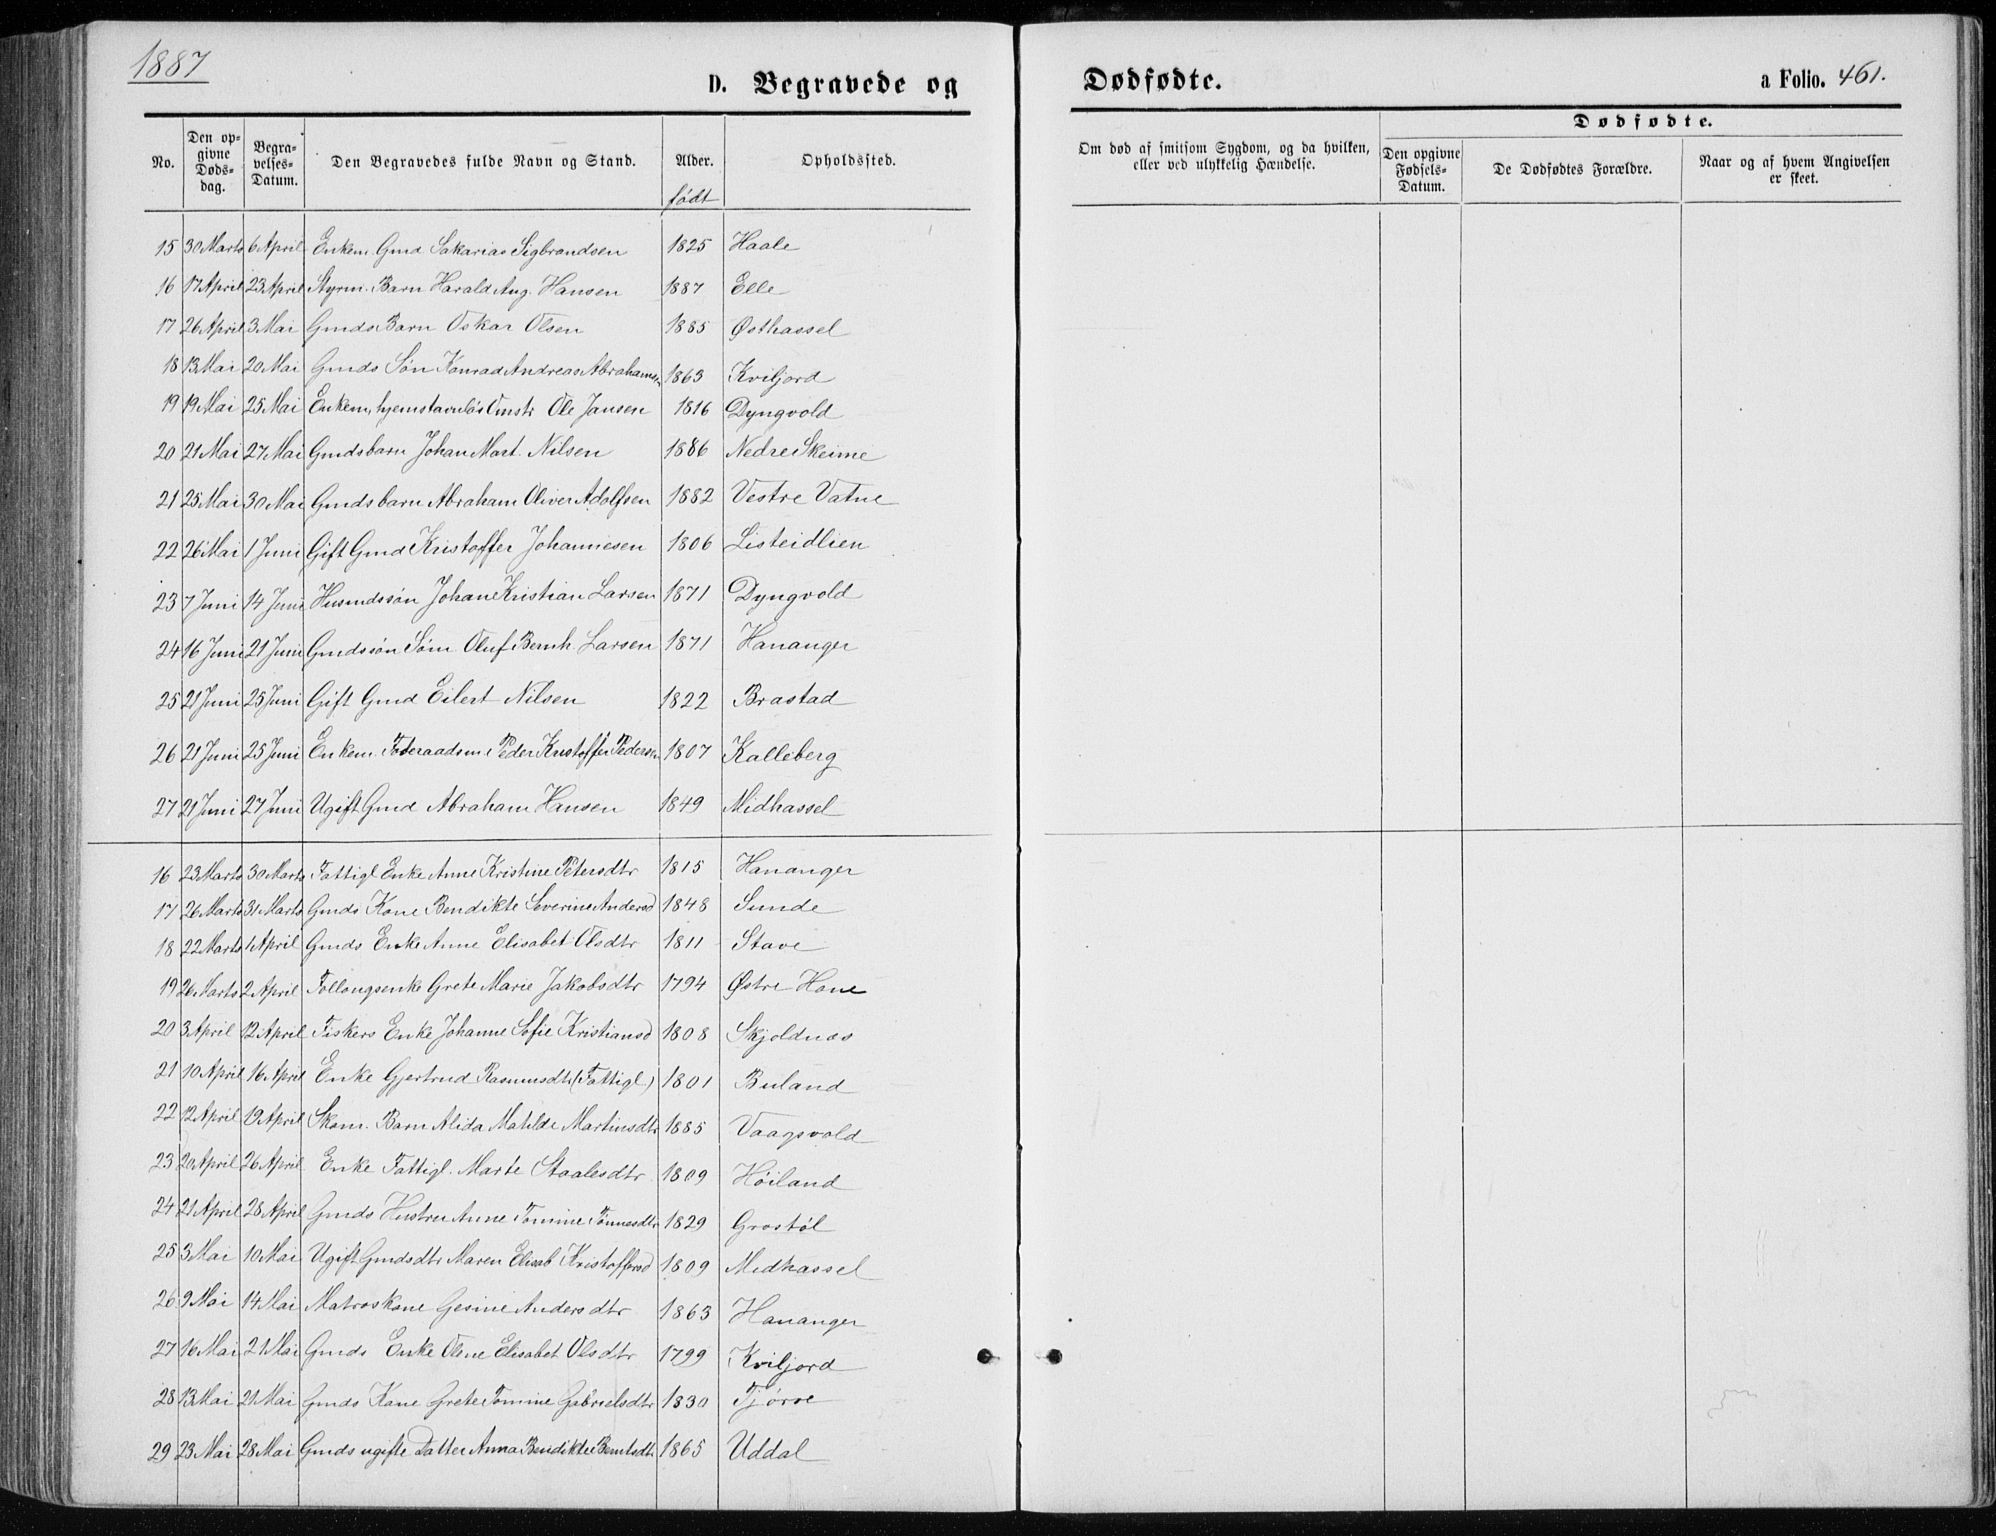 1887
D. Begravede og
Dødfødte.
a Folio. 461.
No.
Den opgivne Dødsdag.
Begravelses-Datum.
Den Begravedes fulde Navn og Stand.
Alder.
født
Opholdssted.
Om død af smitsom Sygdom, og da hvilken, eller ved ulykkelig Hændelse.
Dødfødte.
Den opgivne Fødsels-Datum.
De Dødfødtes Forældre.
Naar og af hvem Angivelsen er skeet.
15 30 Marts 6 April Enkem. Gmd Sakarias Sigbrandsen 1825 Haale
16 17 April 23 April Styrm. Barn Harald Aug. Hansen 1887 Elle
17 26 April 3 Mai Gmds Barn Oskar Olsen 1885 Østhassel
18 13 Mai 20 Mai Gmds Søn Konrad Andreas Abrahamsen 1863 Kviljord
19 19 Mai 25 Mai Enkem, hjemstavnløs Omstr Ole Jansen 1816 Dyngvold
20 21 Mai 27 Mai Gmdsbarn Johan Mart. Nilsen 1886 Nedre Skeime
21 25 Mai 30 Mai Gmdsbarn Abraham Oliver Adolfsen 1882 Vestre Vatne
22 26 Mai 1 Juni Gift Gmd Kristoffer Johannesen 1806 Listeidlien
23 7 Juni 14 Juni Husmdssøn Johan Kristian Larsen 1871 Dyngvold
24 16 Juni 21 Juni Gmdssøn Søm Oluf Bernh. Larsen 1871 Hananger
25 21 Juni 25 Juni Gift Gmd Eilert Nilsen 1822 Brastad
26 21 Juni 25 Juni Enkem. Føderaadsm. Peder Kristoffer Pedersen 1807 Kalleberg
27 21 Juni 27 Juni Ugift Gmd Abraham Hansen 1849 Midhassel
16 23 Marts 30 Marts Fattigl Enke Anne Kristine Petersdtr 1815 Hananger
17 26 Marts 31 Marts Gmds Kone Bendikte Severine Andersd 1848 Sunde
18 22 Marts 1 April Gmds Enke Anne Elisabet Olsdtr 1811 Stave
19 26 Marts 2 April Follougsenke Grete Marie Jakobsdtr 1794 Østre Hane
20 3 April 12 April Fiskers Enke Johanne Sofie Kristiansd 1808 Skjoldnæs
21 10 April 16 April Enke Gjertrud Rasmusdtr (Fattigl) 1801 Buland
22 12 April 19 April Skom. Barn Alida Matilde Martinsdtr 1885 Vaagsvold
23 20 April 26 April Enke Fattigl. Marte Staalesdtr 1809 Høiland
24 21 April 28 April Gmds Hustru Anne Tomine Tønnesdtr 1829 Grostøl
25 3 Mai 10 Mai Ugift Gmdsdtr Maren Elisab Kristoffersd 1809 Midhassel
26 9 Mai 14 Mai Matroskone Gesine Andersdtr 1863 Hananger
27 16 Mai 21 Mai Gmds Enke Olene Elisabet Olsdtr 1799 Kviljord
28 13 Mai 21 Mai Gmds Kone Grete Tomine Gabrielsdtr 1830 Tjørve
29 23 Mai 28 Mai Gmds ugifte Datter Anna Bendikte Berntsdtr 1865 Uddal